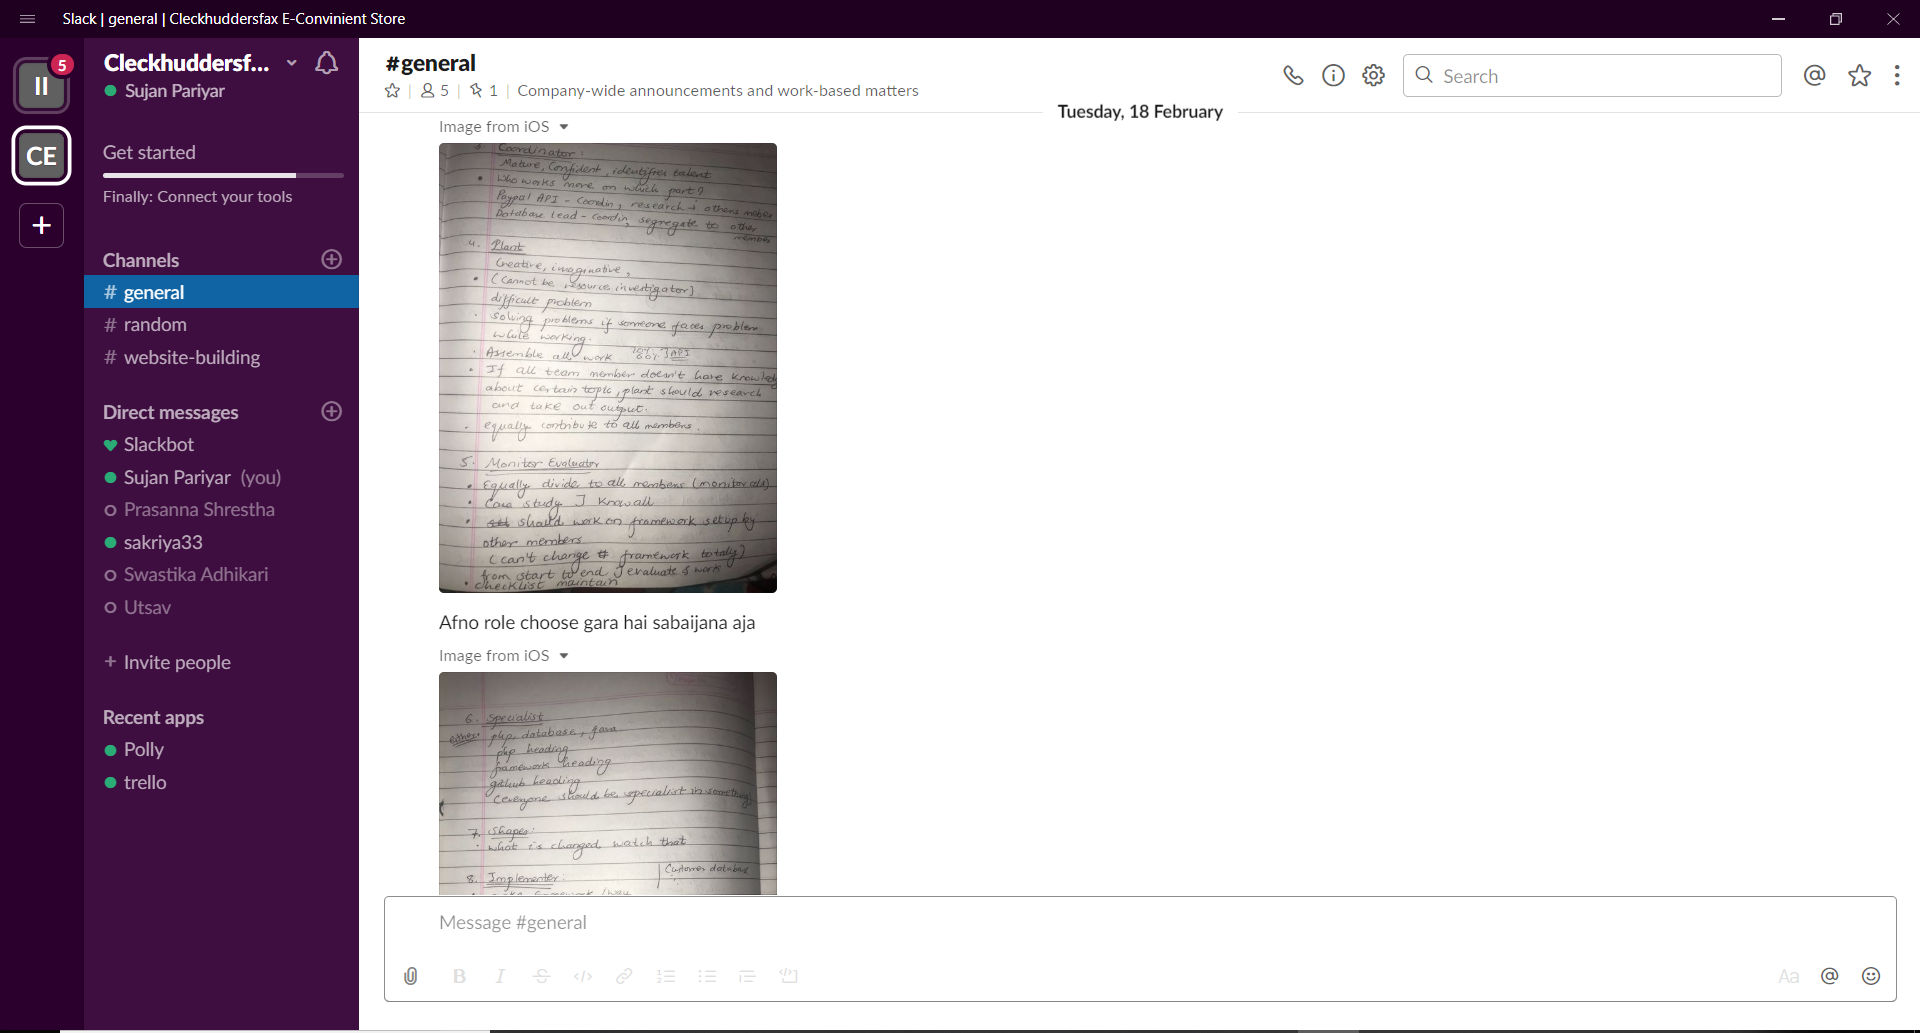 Slack | general | Cleckhuddersfax E-Convinient Store
II
5
CE
+
Cleckhuddersf...
Sujan Pariyar
Get started
Finally: Connect your tools
Channels
# general
# random
# website-building
Direct messages
Slackbot
Sujan Pariyar (you)
Prasanna Shrestha
sakriya33
Swastika Adhikari
Utsav
+ Invite people
Recent apps
Polly
trello
#general
5 | 1 | Company-wide announcements and work-based matters
Search
Tuesday, 18 February
Image from iOS
Coordinator:
Mature, Confident, identifies talent
• Who works more on which part?
Paypal API - Coordin, research → others
Database lead - Coordin, segregate to other
member
4. Plant
Creative, imaginative,
• (Cannot be resource investigator)
difficult problem
• solving problems if someone faces problem
while working.
• Assemble all work API
• If all team member doesn't have knowledg
about certain topic, plant should research
and take out output.
• equally contribute to all members.
5. Monitor Evaluator
• Equally divide to all members (monitor all)
• Case study I Know all
• should work on framework setup by
other members
(can't change framework totaly)
from start to end evaluate work
• checklist maintain
Afno role choose gara hai sabaijana aja
Image from iOS
6. Specialist
either php, database, java
php heading
framework heading
github heading
(everyone should be specialist in something)
7. Shaper:
• What is changed, watch that
Customer database
8. Implementer:
Message #general
B I S </>
Aa @